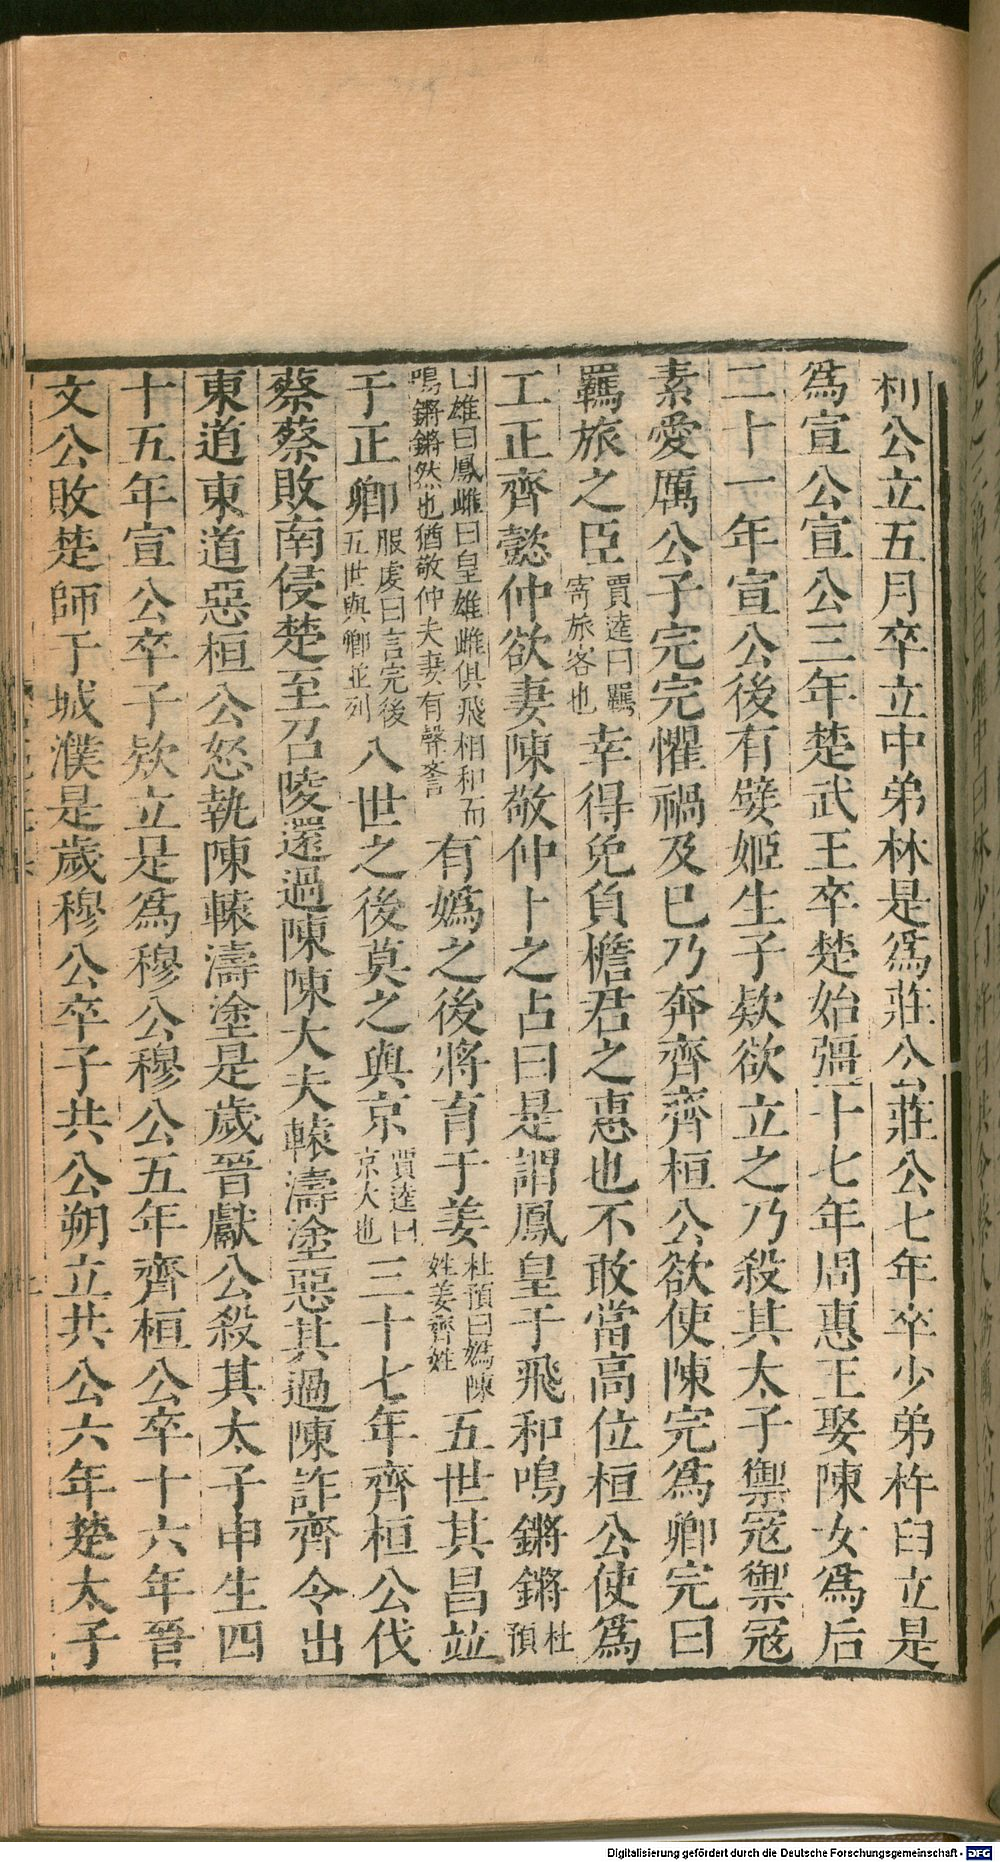 利公立五月卒立中弟林是爲莊公莊公七年卒少弟杵臼立是
爲宣公宣公三年楚武王卒楚始彊十七年周惠王娶陳女爲后
二十一年宣公後有嬖姬生子欵欲立之乃殺其太子禦寇禦寇
素愛厲公子完完懼禍及巳乃奔齊齊桓公欲使陳完爲卿完曰
羈旅之臣賈逵曰羈寄旅客也幸得免負檐君之惠也不敢當高位桓公使爲
工正齊懿仲欲妻陳敬仲卜之占曰是謂鳳皇于飛和鳴鏘鏘杜預
曰雄曰鳳雌曰皇雄雌俱飛相和而鳴鏘鏘然也猶敬仲夫妻有聲譽有嬀之後將育于姜杜預曰嬀陳姓姜齊姓五世其昌並
于正卿服虔曰言完後五世與卿並列八世之後莫之與京賈逵曰京大也三十七年齊桓公伐
蔡蔡敗南侵楚至召陵還過陳陳大夫轅濤塗惡其過陳詐齊令出
東道東道惡桓公怒執陳轅濤塗是歲晉獻公殺其太子申生四
十五年宣公卒子欵立是爲穆公穆公五年齊桓公卒十六年晉
文公敗楚師于城濮是歲穆公卒子共公朔立共公六年楚太子
Digitalisierung gefördert durch die Deutsche Forschungsgemeinschaft - DFG